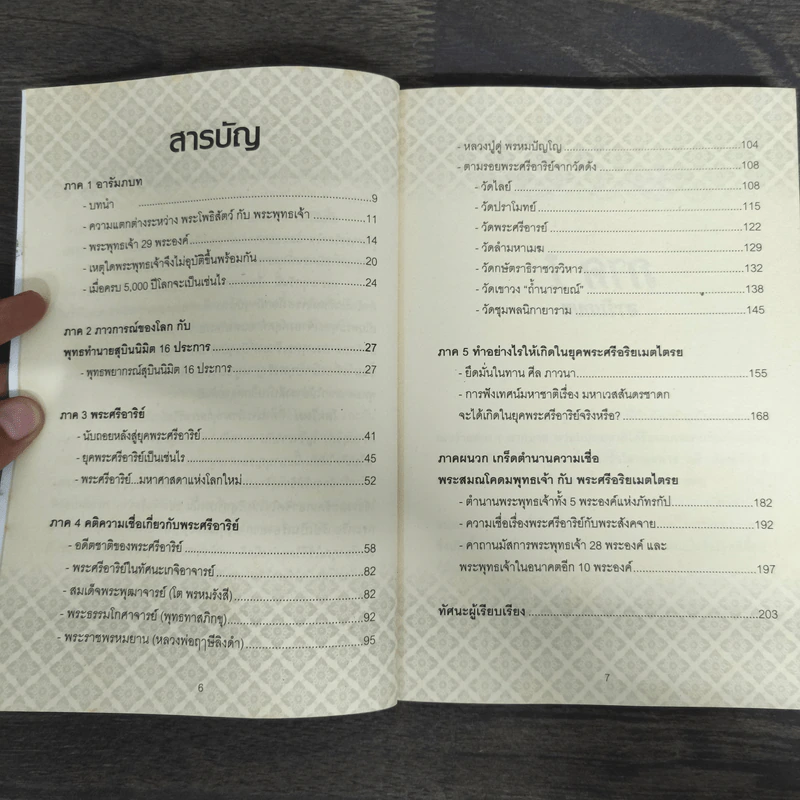 สารบัญ
ภาค 1 อารัมภบท
- บทนำ ....................9
- ความแตกต่างระหว่าง พระโพธิสัตว์ กับ พระพุทธเจ้า ............11
- พระพุทธเจ้า 29 พระองค์....................14
- เหตุใดพระพุทธเจ้าจึงไม่อุบัติขึ้นพร้อมกัน ....................20
- เมื่อครบ 5,000 ปีโลกจะเป็นเช่นไร ....................24
ภาค 2 ภาวการณ์ของโลก กับ
พุทธทำนายสุบินนิมิต 16 ประการ....................27
- พุทธพยากรณ์สุบินนิมิต 16 ประการ....................27
ภาค 3 พระศรีอาริย์
- นับถอยหลังสู่ยุคพระศรีอาริย์....................41
- ยุคพระศรีอาริย์เป็นเช่นไร ....................45
- พระศรีอาริย์...มหาศาสดาแห่งโลกใหม่....................52
ภาค 4 คติความเชื่อเกี่ยวกับพระศรีอาริย์
- อดีตชาติของพระศรีอาริย์ ....................58
- พระศรีอาริย์ในทัศนะเกจิอาจารย์....................82
- สมเด็จพระพุฒาจารย์ (โต พรหมรังสี)....................82
- พระธรรมโกศาจารย์ (พุทธทาสภิกขุ)....................92
- พระราชพรหมยาน (หลวงพ่อฤๅษีลิงดำ)....................95
6
- หลวงปู่ดู่ พรหมปัญโญ....................104
- ตามรอยพระศรีอาริย์จากวัดดัง ....................108
- วัดไลย์ ....................108
- วัดปราโมทย์....................115
- วัดพระศรีอารย์ ....................122
- วัดลำมหาเมฆ ....................129
- วัดกษัตราธิราชวรวิหาร....................132
- วัดเขาวง "ถ้ำนารายณ์" ....................138
- วัดชุมพลนิกายาราม ....................145
ภาค 5 ทำอย่างไรให้เกิดในยุคพระศรีอริยเมตไตรย
- ยึดมั่นในทาน ศีล ภาวนา....................155
- การฟังเทศน์มหาชาติเรื่อง มหาเวสสันดรชาดก
จะได้เกิดในยุคพระศรีอาริย์จริงหรือ? ....................168
ภาคผนวก เกร็ดตำนานความเชื่อ
พระสมณโคดมพุทธเจ้า กับ พระศรีอริยเมตไตรย
- ตำนานพระพุทธเจ้าทั้ง 5 พระองค์แห่งภัทรกัป....................182
- ความเชื่อเรื่องพระศรีอาริย์กับพระสังคจาย....................192
- คาถานมัสการพระพุทธเจ้า 28 พระองค์ และ
พระพุทธเจ้าในอนาคตอีก 10 พระองค์....................197
ทัศนะผู้เรียบเรียง ....................203
7